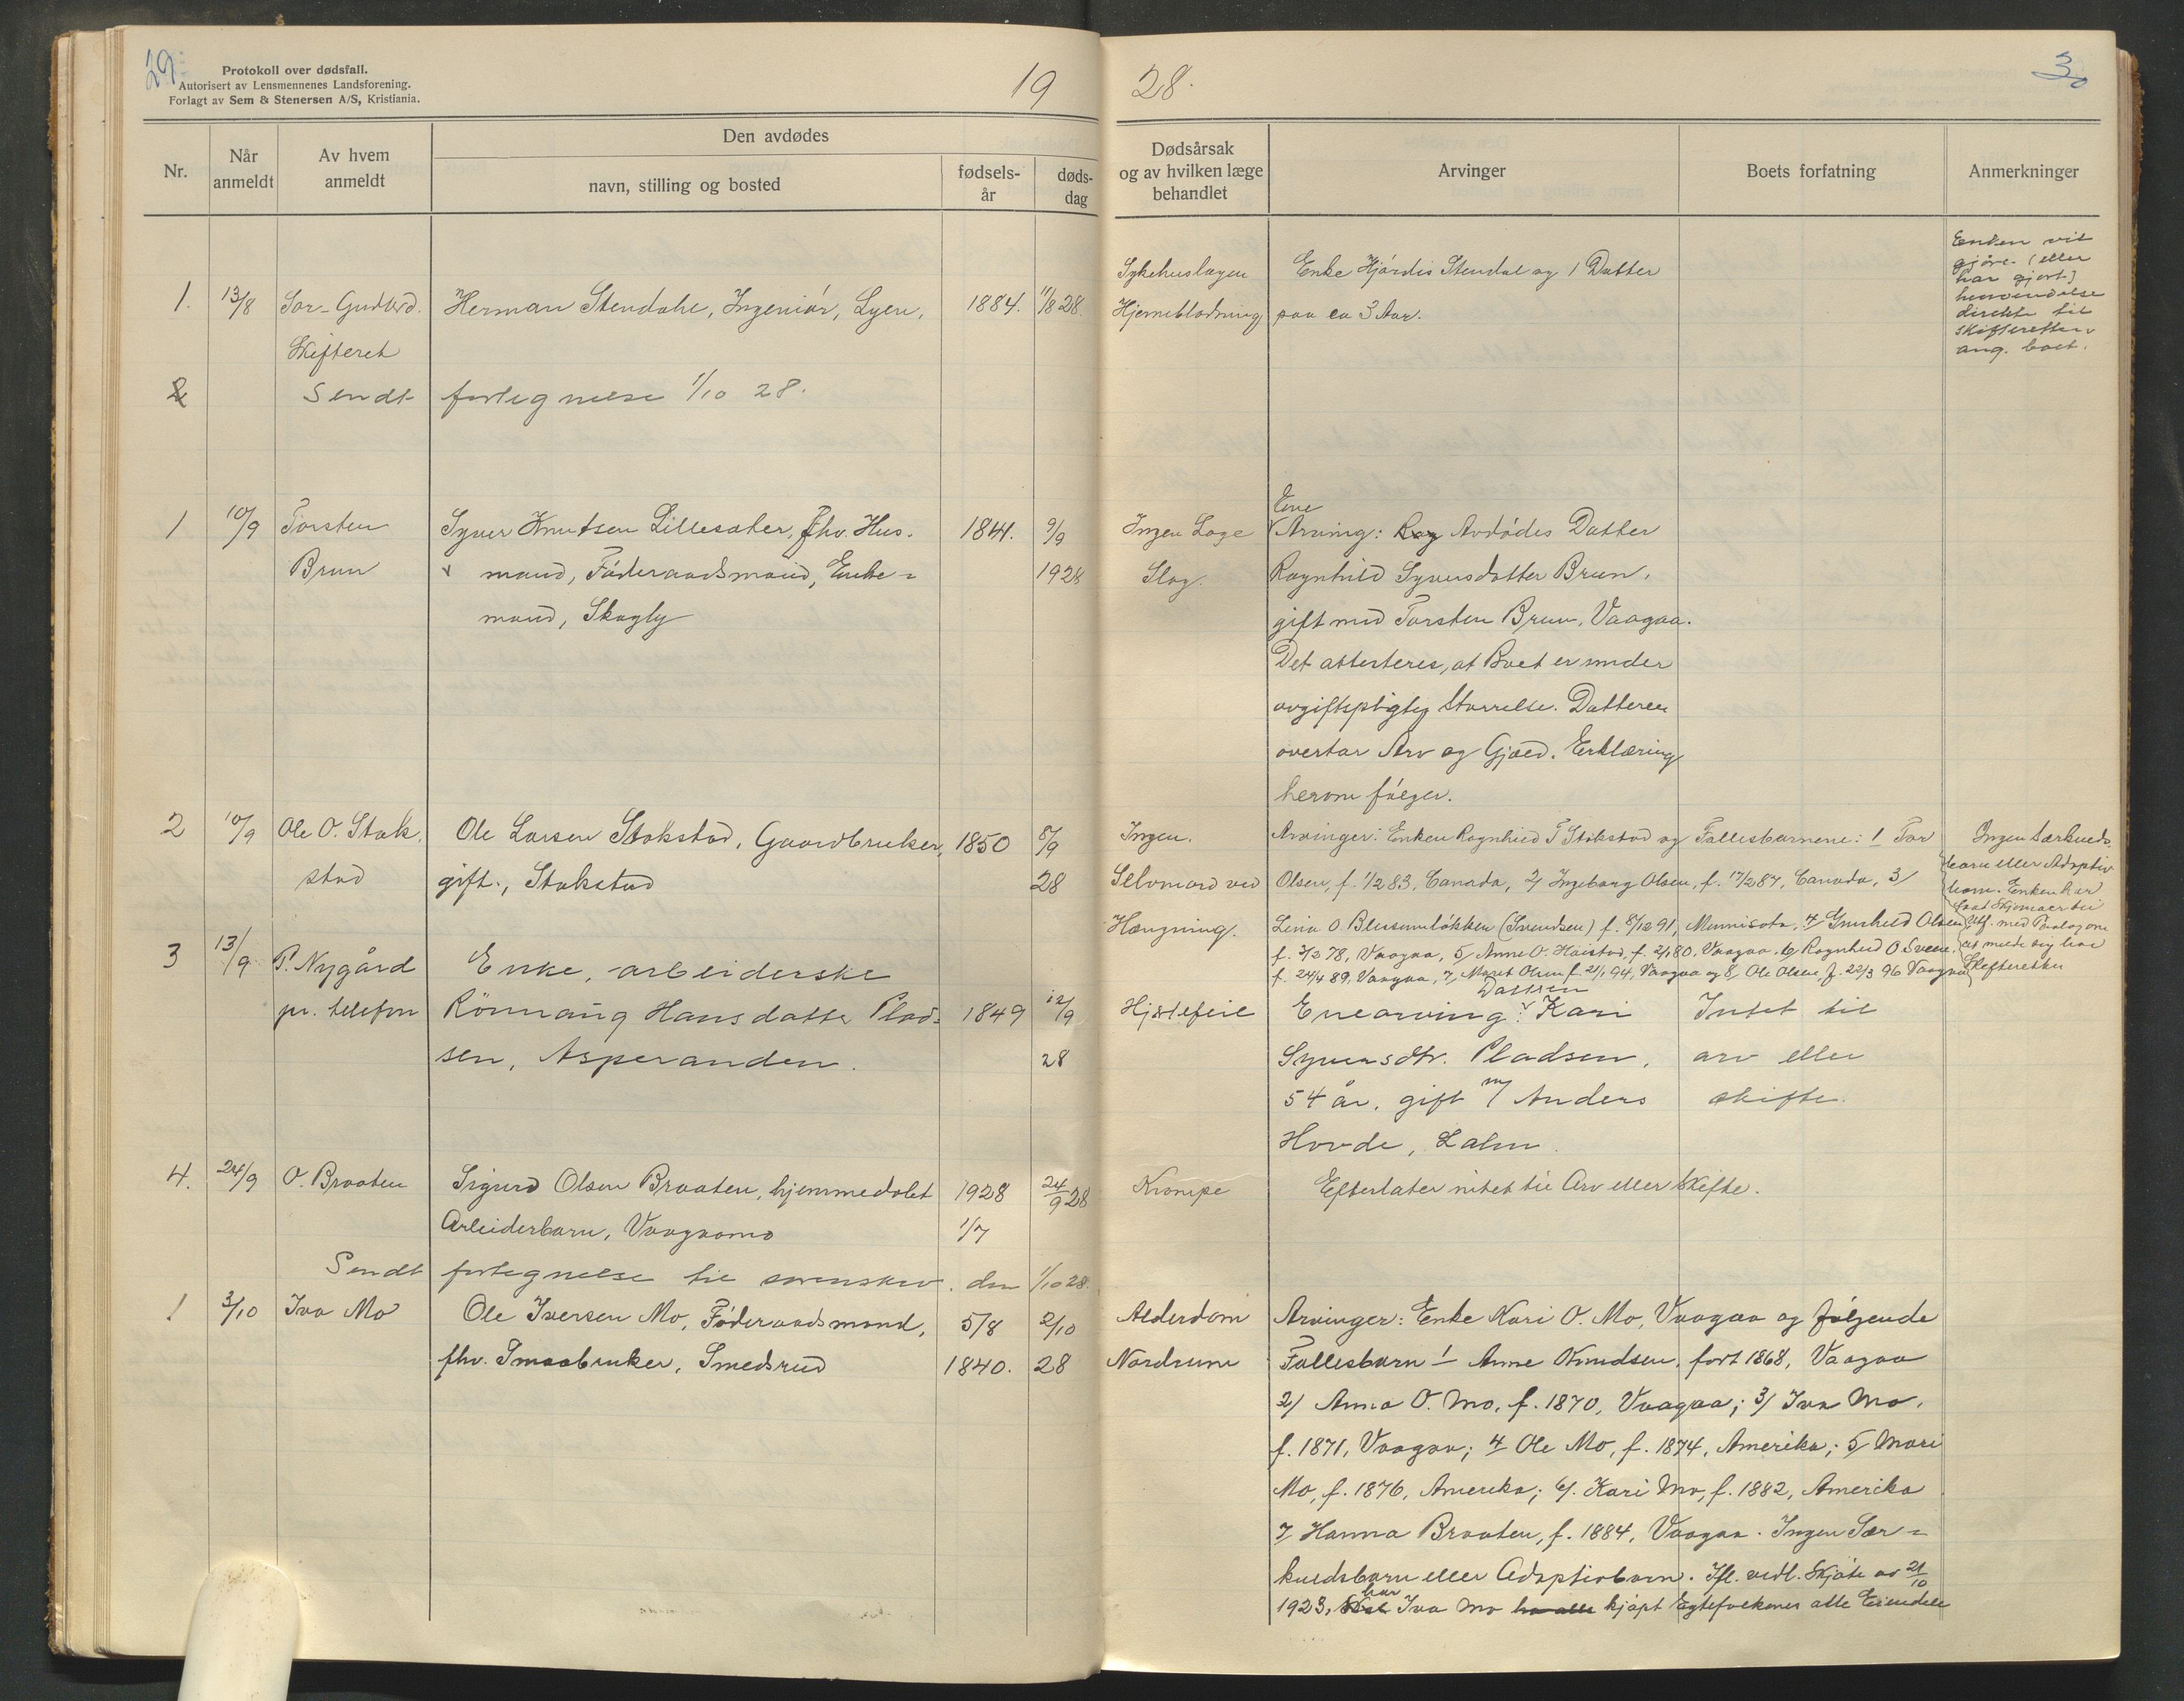 29
Protokoll over dødsfall.
Autorisert av Lensmennenes Landsforening.
Forlagt av Sem & Stenersen A/S, Kristiania.
19
Nr.
Når anmeldt
Av hvem anmeldt
Den avdødes
navn, stilling og bosted
fødselsår
dødsdag
1. 13/8 Sør-Gudbrd. Herman Stendahl, Ingeniör, Lyen, 1884. 11/8 28.
Skifteret
2 Sendt fortegnelse 1/10 28.
1 10/9 Torsten Syver Knutsen Lillesæter, fhv. Hus- 1841. 9/9
Brun mand, Föderaadsmand, Enke= 1928
mand, Skogly
2 10/9 Ole O. Stok Ole Larsen Stokstad, Gaardbruker, 1850 8/9
stad gift., Stokstad 28
3 13/9 P. Nygård Enke, arbeiderske
pr. telefon Rönnaug Hansdatter Plad- 1849 12/9
sen, Asperanden. 28
4. 24/9 O. Braaten Sigurd Olsen Braaten, hjemmedøbt 1928 24/9 28
Arbeiderbarn, Vaagaamo 1/7
Sendt fortegnelse til sorenskriv. den 1/10 28.
1 3/10 Iva Mo Ole Iversen Mo, Föderaadsmand, 5/8 2/10
fhv. Smaabruker, Smedsrud 1840. 28
28.
30
Dødsårsak og av hvilken læge behandlet
Arvinger
Boets forfatning
Anmerkninger
Enken vil
gjöre (eller
har gjort)
henvendelse
direkte til
skifteretten
ang. boet.
Sykehuslægen Enke Hjördis Stendal og 1 Datter
Hjerneblødning paa ca 3 Aar.
Ene
Ingen Læge Arving: Rag Avdödes Datter
Slag. Ragnhild Syversdatter Brun,
gift med Torsten Brun, Vaagaa.
Det attesteres, at Boet er under
avgiftspligtig Størrelse. Datteren
overtar Arv og Gjæld. Erklæring
herom fölger.
Ingen. Arvinger: Enken Ragnhild T Stokstad og Fællesbarnene: 1 Tor Ingen Særkulds-
Selvmord ved Olsen, f. 1/2 83, Canada, 2/ Ingeborg Olsen, f. 17/2 87, Canada, 3/ barn eller Adoptiv
barn. Enken har
faat Skjemaer til
Hængning. Lina O Blessumløkken (Svendsen) f. 8/12 91, Minnisota, 4 Gunhild Olsen Utf. med
f. 3/2 78, Vaagaa, 5/ Anne O. Haistad, f. 2/1 80, Vaagaa. 6/ Ragnhild O Sveen. at melde sig hos
f. 24/4 89, Vaagaa, 7, Marit Olsen f. 21/1 94, Vaagaa og 8, Ole Olsen, f. 22/3 96 Vaagaa Skifteretten
Datteren
Hjertefeil Enearving: Kari Intet til
Syversdtr. Pladsen, arv eller
54 år, gift m/ Anders skifte.
Hovde, Lalm.
Krampe Efterlater intet til Arv eller Skifte.
Alderdom Arvinger: Enke Kari O. Mo, Vaagaa og fölgende
Nordrum Fællesbarn 1 Anne Knudsen, født 1868, Vaagaa
2/ Anna O. Mo, f. 1870, Vaagaa; 3/ Iva Mo,
f. 1871, Vaagaa; 4 Ole Mo, f. 1874, Amerika; 5/ Mari
Mo, f. 1876, Amerika; 6/. Kari Mo, f. 1882, Amerika
7 Hanna Braaten, f. 1884, Vaagaa. Ingen Sær=
kuldsbarn eller Adoptivbarn. Ifl. vedl. Skjöte av 21/10
har
1923, Iva Mo kjøpt Egtefolkenes alle Eiendele